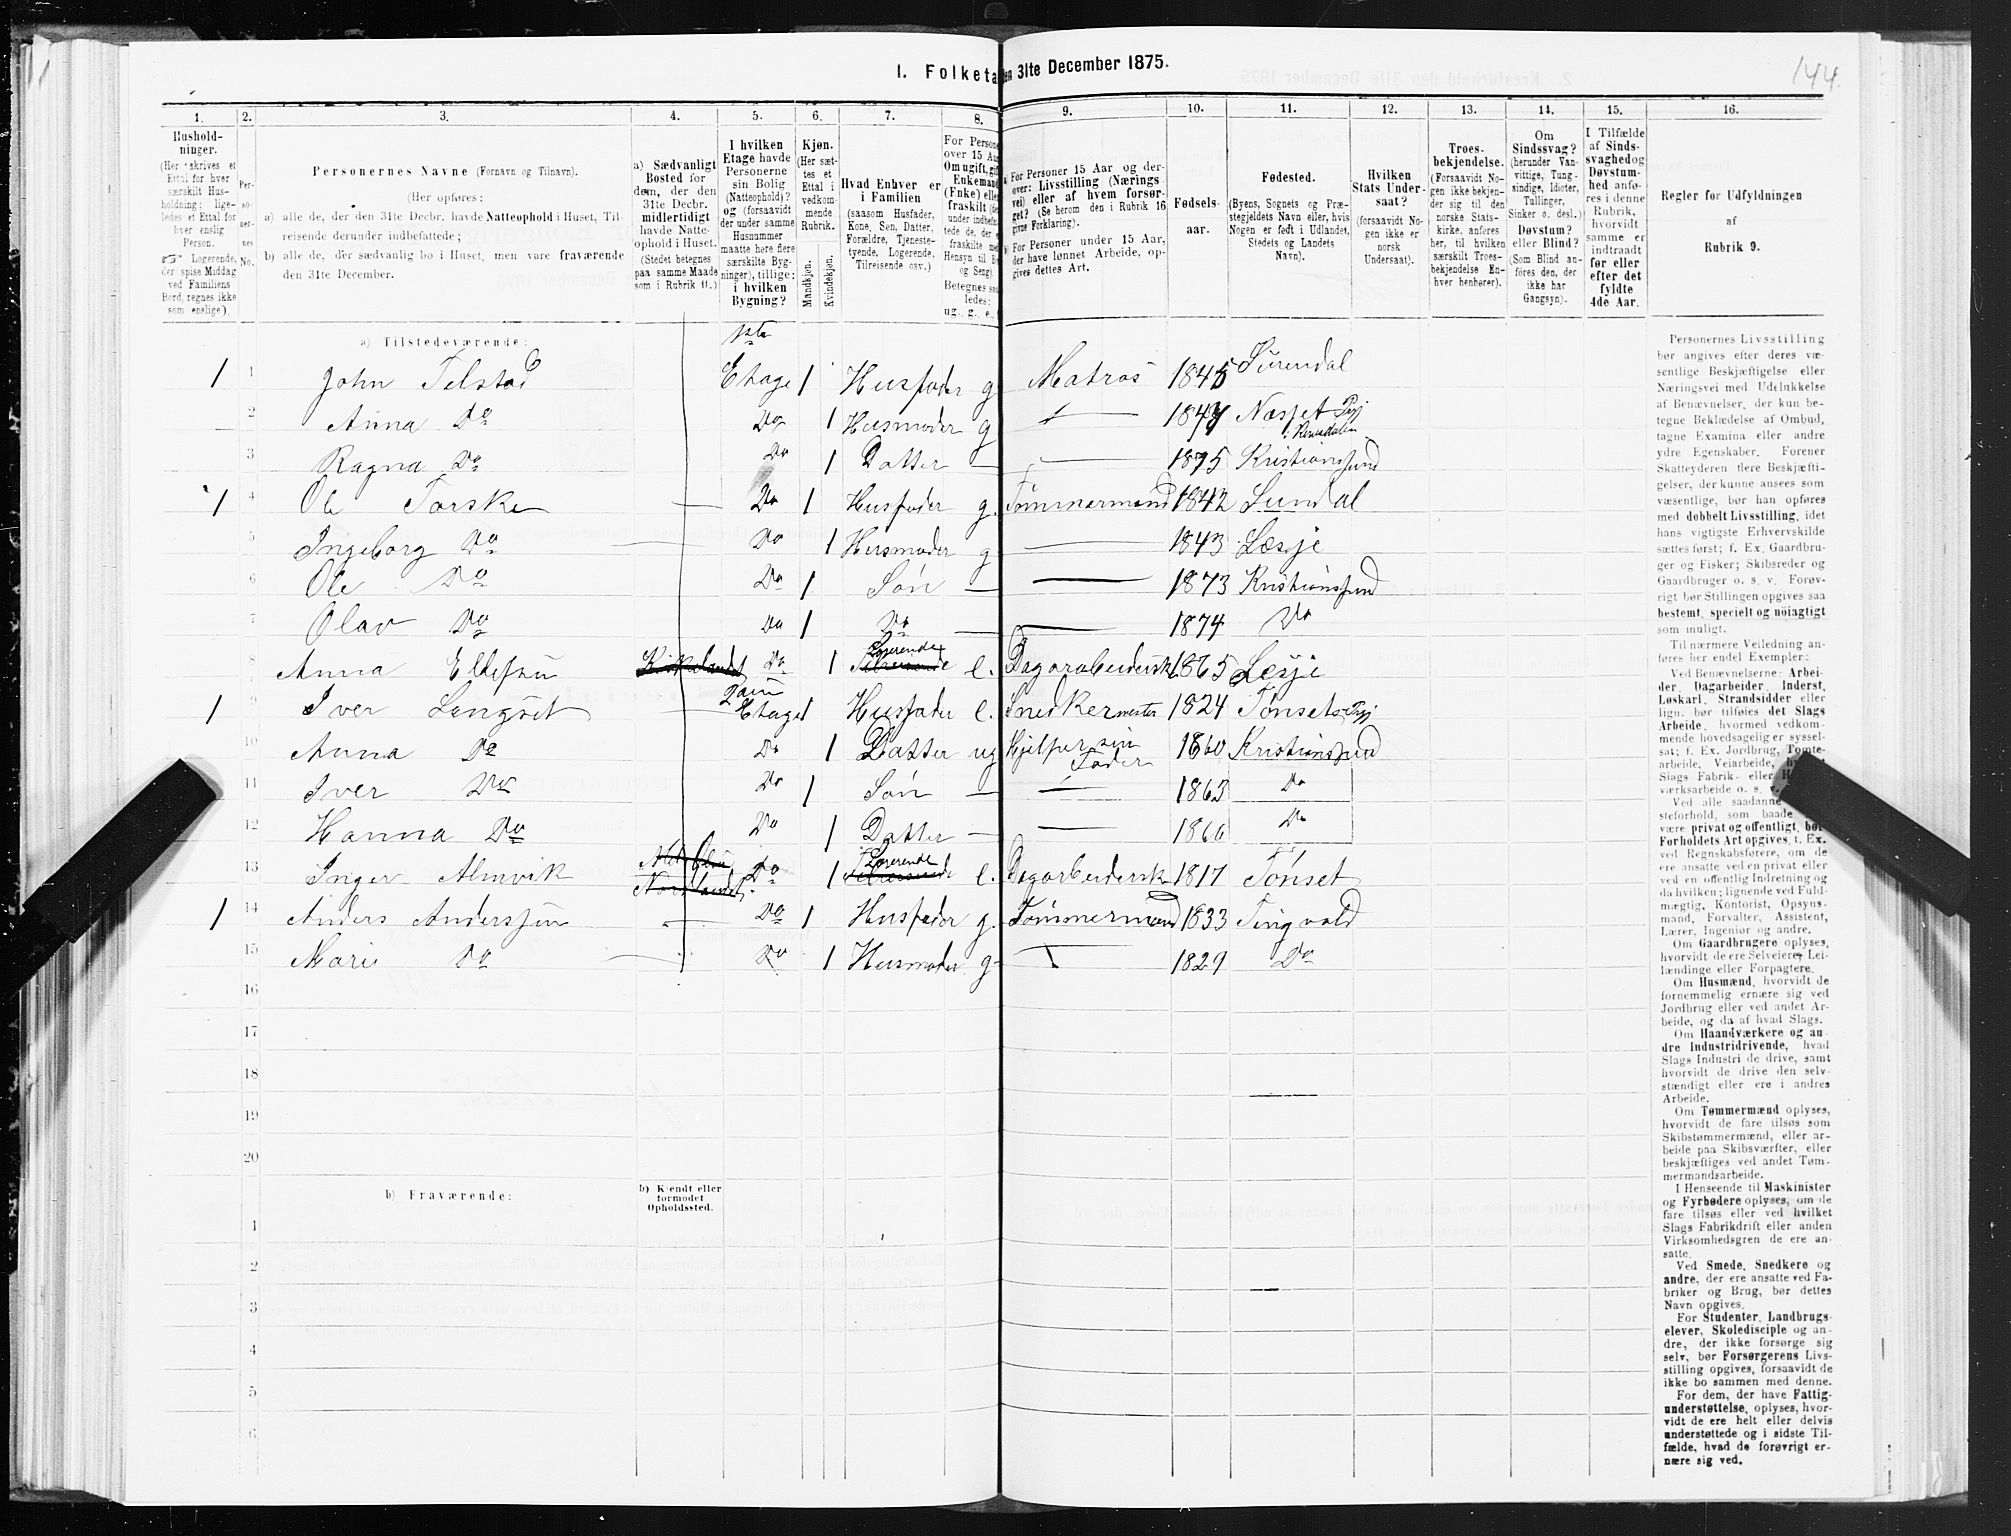 I. Folketa
den 31te December 1875.
144.
1. 2. 3. 4. 5. 6. 7. 8. 9. 10. 11. 12. 13. 14. 15. 16.
Hushold-
ninger.
(Her skrives et
Ettal for hver
særskilt Hus-
holdning; lige-
ledes et Ettal for
hver enslig
Person.
☞ Logerende,
der spise Middag
ved Familiens
Bord, regnes ikke
som enslige).
Per-
so-
ner-
nes
No.
Personernes Navne (Fornavn og Tilnavn).
(Her opføres:
a) alle de, der den 31te Decbr. havde Natteophold i Huset, Til-
reisende derunder indbefattede;
b) alle de, der sædvanlig bo i Huset, men vare fraværende
den 31te December.
a) Sædvanligt
Bosted for
dem, der den
31te Decbr.
midlertidigt
havde Natte-
ophold i Huset.
(Stedet betegnes
paa samme Maade
som i Rubrik 11.)
I hvilken
Etage havde
Personerne
sin Bolig
(Natteophold)?
og (forsaavidt
der under samme
Husnummer
maatte høre flere
særskilte Byg-
ninger), tillige:
i hvilken
Bygning?
Kjøn.
(Her sæt-
tes et
Ettal i
vedkom-
mende
Rubrik.
Mandkjøn.
Kvindekjøn.
Hvad Enhver er
i Familien
(saasom Husfader,
Kone, Søn, Datter,
Forældre, Tjeneste-
tyende, Logerende,
Tilreisende osv.)
For Persone
over 15 Aa
Om ugift, gif
Enkemand
(Enke) elle
fraskilt
under indbefat-
tede de, der e
fraskilte me
Hensyn til B
og Seng).
Betegnes saa
ledes:
ug., g., e.,
For Personer 15 Aar og der-
over: Livsstilling (Nærings
vei) eller af hvem forsør-
get? (Se herom den i Rubrik 16
givne Forklaring).
For Personer under 15 Aar,
der have lønnet Arbeide, op-
gives dettes Art.
Fødsels-
aar.
Fødested.
(Byens, Sognets og Præ-
stegjeldets Navn eller, hvis
Nogen er født i Udlandet,
Stedets og Landets
Navn).
Hvilken
Stats Under-
saat?
(forsaavidt No-
gen ikke er
norsk
Undersaat).
Troes-
bekjendelse.
(Forsaavidt No-
gen ikke bekjen-
der sig til den
norske Stats-
kirke, anføres
her, til hvilken
særskilt Troes-
bekjendelse En-
hver henhører).
Om
Sindssvag?
(herunder Van-
vittige, Tung-
sindige, Idioter,
Tullinger,
Sinker o. desl.)
Døvstum?
eller Blind?
(Som Blind an-
føres den, der
ikke har
Gangsyn).
I Tilfælde
af Sinds-
svaghed og
Døvstum-
hed anfø-
res i denne
Rubrik,
hvorvidt
samme er
indtraadt
før eller
efter det
fyldte
4de Aar.
Regler for Udfyldningen
af
Rubrik 9.
a) Tilstedeværende:
1ste
1 1 John Telstad Etage 1 Husfader g Matros 1845 Surendal
2 Anna Do Do 1 Husmoder g — 1847 Næsset Pgj
i Romsdalen
3 Ragna Do Do 1 Datter — — 1875 Kristianssund
1 4 Ole Torske — Do 1 Husfader g. Tømmermand 1842 Sundal
5 Ingeborg Do — Do 1 Husmoder g — 1843 Læsje
6 Ole Do Do 1 Søn — — 1873 Kristianssund
7 Olav Do Do 1 Do — — 1874 Do
8 Anna Do 1 Logerende e. 1865 Læsje
1 9 Iver Lengset Etage 1 Husfader e. Snedkermester 1824 Tønset Pgj
10 Anna Do Do 1 Datter ug Hjelper sin
Fader 1860 Kristianssund
11 Iver Do Do 1 Søn — — 1863 Do
12 Hanna Do Do 1 Datter — — 1866 Do
13 Inger Almvik Do 1 Logerende e. 1817 Tønset
1 14 Anders Anderssen — Do 1 Husfader g. Tømmermand 1833 Tingvold
15 Marie Do — Do 1 Husmoder g — 1829 Do
16
17
18
19
20
b) Fraværende:
b) Kjendt eller
formodet
Opholdssted.
1
2
3
4
5
6
Personernes Livsstilling
bør angives efter deres væ-
sentlige Beskjæftigelse eller
Næringsvei med Udelukkelse
af Benævnelser, der kun be-
tegne Beklædelse af Ombud,
tagne Examina eller andre
ydre Egenskaber. Forener
Skatteyderen flere Beskjæfti-
gelser, der kunne ansees som
væsentlige, bør han opføres
med dobbelt Livsstilling, idet
hans vigtigste Erhvervskilde
sættes først; f. Ex. Gaardbru-
ger og Fisker; Skibsreder og
Gaardbruger o. s. v. Forøv-
rigt bør Stillingen opgives saa
bestemt, specielt og nøiagtigt
som muligt.
Til nærmere Veiledning an-
føres her endel Exempler:
Ved Benævnelserne: Arbei-
der, Dagarbeider, Inderst,
Løskarl, Strandsidder eller
lign. bør tilføies det Slags
Arbeide, hvormed vedkom-
mende hovedsagelig er syssel-
sat; f. Ex. Jordbrug, Tomte-
arbeide, Veiarbeide,
Slags Fabrik- eller
værksarbeide o. s. v.
Ved alle saadanne
steforhold, som baade
være privat og offentligt, bør
Forholdets Art opgives, t. Ex.
ved Regnskabsførere, om de
ere ansatte ved en privat eller
ved en offentlig Indretning og
da hvilken; lignende ved Fuld-
mægtig, Kontorist, Opsyns-
mand, Forvalter, Assistent,
Lærer, Ingeniør og andre.
Om Gaardbrugere oplyses,
hvorvidt de ere Selveiere, Lei-
lændinge eller Forpagtere.
Om Husmænd, hvorvidt de
fornemmelig ernære sig ved
Jordbrug eller ved andet Ar-
beide, og da af hvad Slags.
Om Haandværkere og an-
dre Industridrivende, hvad
Slags Industri de drive, samt
hvorvidt de drive den selv-
stændigt eller ere i andres
Arbeide.
Om Tømmermænd oplyses,
hvorvidt de fare tilsøs som
Skibstømmermænd, eller ar-
beide paa Skibsværfter, eller
beskjæftiges ved andet Tøm-
mermandsarbeide.
I Henseende til Maskinister
og Fyrbødere oplyses, om de
fare tilsøs eller ved hvilket
Slags Fabrikdrift eller anden
Virksomhedsgren de ere an-
satte.
Ved Smede, Snedkere og
andre, der ere ansatte ved Fa-
briker og Brug, bør dettes
Navn opgives.
For Studenter, Landbrugs-
elever, Skoledisciple og an-
dre, der ikke forsørge sig
selv, bør Forsørgerens Livs-
stilling opgives, forsaavidt de
ikke bo sammen med denne.
For dem, der have Fattig-
understøttelse, oplyses, hvor-
vidt de ere helt eller delvis
understøttede og i sidste Til-
fælde, hvad de forøvrigt er-
nære sig ved.